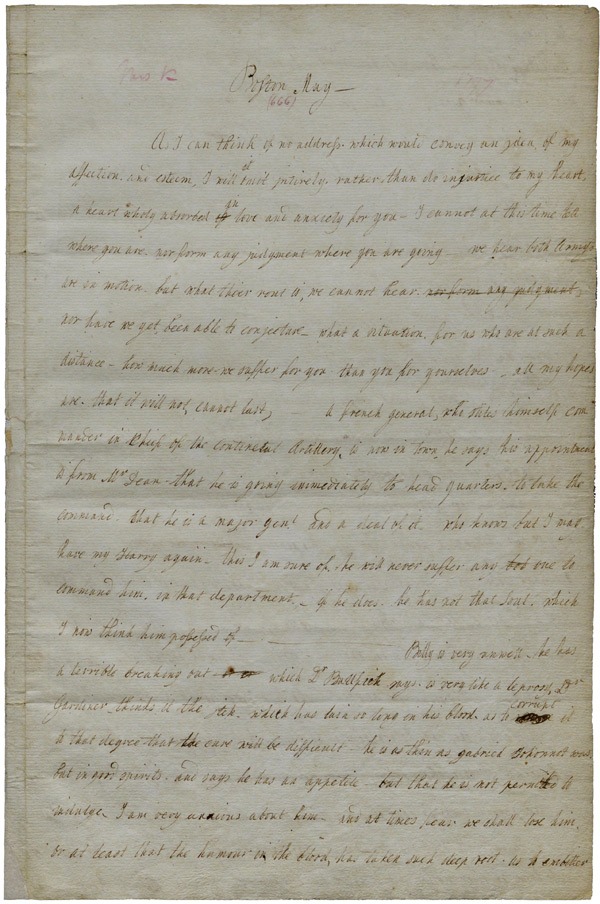 Boston May —
(666)
As I can think of no address which would convey an idea of my
affection and esteem, I will omit it intirely rather than do injustice to my heart,
a heart wholy absorbed in love and anxiety for you – I cannot at this time tell
where you are nor form any judgment where you are going – we hear both armys
are in motion but what their rout is, we cannot hear nor form any judgment,
nor have we yet been able to conjecture – what a situation for us who are at such a
distance – how much more we suffer for you than you for yourselves – all my hopes
are that it will not, cannot last, a french general, who stiles himself com
mander in Chief of the continetal Artillery, is now in town, he says his appointment
is from Mr Dean – that he is going immediately to head quarters to take the
command that he is a major genl and a deal of it who knows but I may
have my Harry again – this I am sure of he will never suffer any one to
command him in that department – if he does he has not that Soul which
I now think him possesed of –
Billy is very unwell – he has
a terrible breaking out which Dr Bullfich says is very like a leprosy Dr
Gardiner thinks it the itch which has lain so long in his blood as to corrupt it
to that degree that the cure will be difficult – he is as thin as gabriel Johonnot was,
but in good spirits and says he has an appetite – but that he is not permitted to
indulge I am very anxious about him – and at times fear we shall lose him
or at least that the humour in the blood has taken such deep root as to embitter